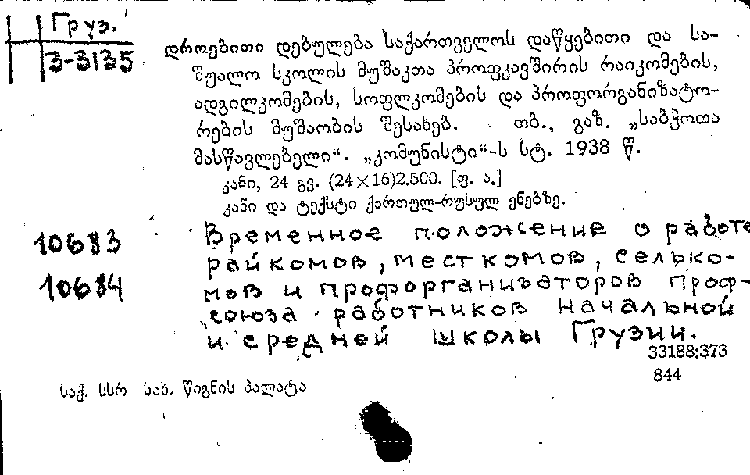 Груз.
3-3135
დროებითი დებულება საქართველოს დაწყებითი და სა-
შუალო სკოლის მუშაკთა პროფკავშირის რაიკომების,
ადგილკომების, სოფლკომების და პროფორგანიზატო-
რების მუშაობის შესახებ. თბ., გაზ. „საბჭოთა
მასწავლებელი“. „კომუნისტი“-ს სტ. 1938 წ.
კანი, 24 გვ. (24×16)2.500. [უ. ა.]
კანი და ტექსტი ქართულ-რუსულ ენებზე.
10683
10684
Временное положение о работе
райкомов, месткомов, селько-
мов и профорганизаторов проф-
союза работников начальной
и средней школы Грузии.
33188:373
844
საქ. სსრ სახ. წიგნის პალატა